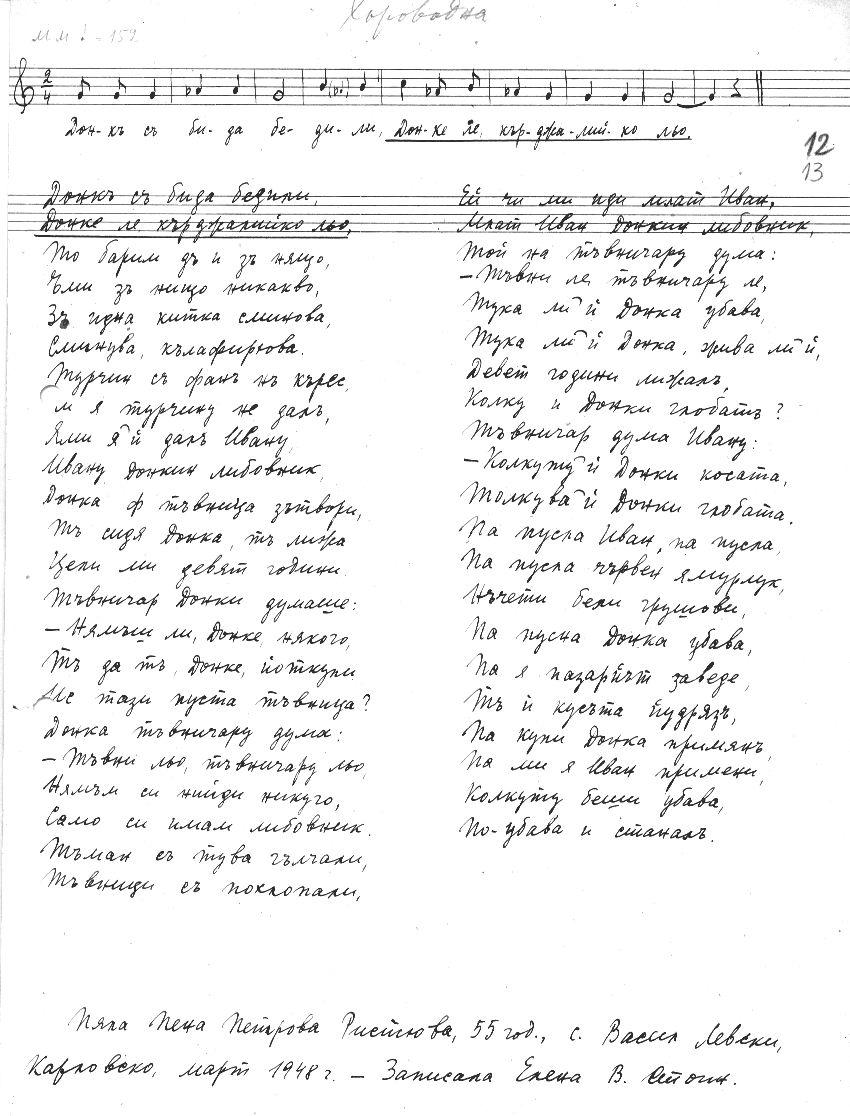 Хороводна
ММ ♩ = 152
2/4
Дон-къ съ би-да бе-ди-ли, Дон-ке ле, кър-джа-лий-ко льо.
12
13
Донкъ съ бида бедили,
Донке ле кърджалийко льо,
То барим дъ и зъ нящо,
Ъми зъ нищо никакво,
Зъ идна китка сминова,
Сминува, кълафирюва.
Турчин съ фанъ нъ кърес,
М я турчину не далъ,
Ями я й далъ Ивану,
Ивану Донкин либовник,
Донка ф тъвница зътвори,
Тъ сидя Донка, тъ лижа
Цели ми девят години.
Тъвничар Донки думаше:
– Нямъш ли, Донке, някого,
Тъ да тъ, Донке, йоткупи
Ис тази пуста тъвница?
Донка тъвничару дума:
– Тъвни льо, тъвничару льо,
Нямъм си нийди никуго,
Само си имам либовник.
Тъман съ тува гълчали,
Тъвници съ похлопали,
Ей чи ми иди млат Иван,
Млат Иван Донкин либовник,
Той на тъвничару дума:
– Тъвни ле, тъвничару ле,
Тука ли й Донка убава,
Тука ли й Донка, жива ли й,
Девет години лижалъ,
Колку и Донки глобатъ?
Тъвничар дума Ивану:
– Колкуту й Донки косата,
Толкува й Донки глобата.
Па пусла Иван, па пусла,
Па пусла чървен ямурлук,
Нъчети бели грушови,
Па пусна Донка убава,
Па я пазарйът заведе,
Тъ и кусъта йудрязъ,
Па купи Донка примянъ,
Па ми я Иван примени,
Колкуту беши убава,
По-убава и станалъ.
Пяла Пена Петрова Ристюва, 55 год., с. Васил Левски,
Карловско, март 1948 г. – Записала Елена В. Стоин.